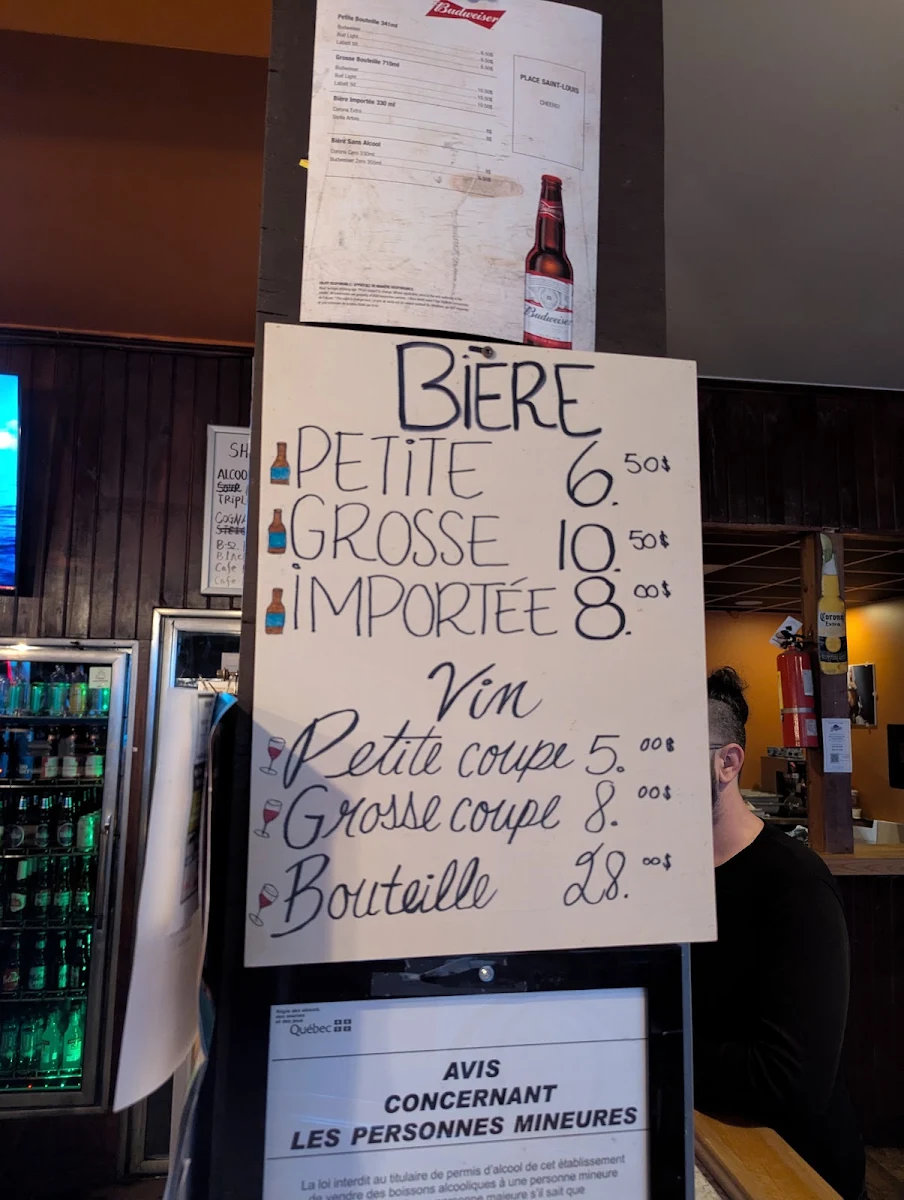 Budweiser
Petite Bouteille 341ml
Budweiser
Bud Light
Labatt 50
Grosse Bouteille 710ml
Budweiser
Bud Light
Labatt 50
Bière Importée 330 ml
Corona Extra
Stella Artois
Bière Sans Alcool
Corona Zero 330ml
Budweiser Zero
PLACE SAINT-LOUIS
CHEERS!
Budweiser
BIÈRE
PETITE 6.50$
GROSSE 10.50$
IMPORTÉE 8.00$
Vin
Petite coupe 5.00$
Grosse coupe 8.00$
Bouteille 28.00$
SH
ALCOO
TRIPL
COGNA
B-52
Café
Corona
Extra
Québec
AVIS
CONCERNANT
LES PERSONNES MINEURES
La loi interdit au titulaire de permis d'alcool de cet établissement
de vendre des boissons alcooliques à une personne mineure
personne majeure s'il sait que